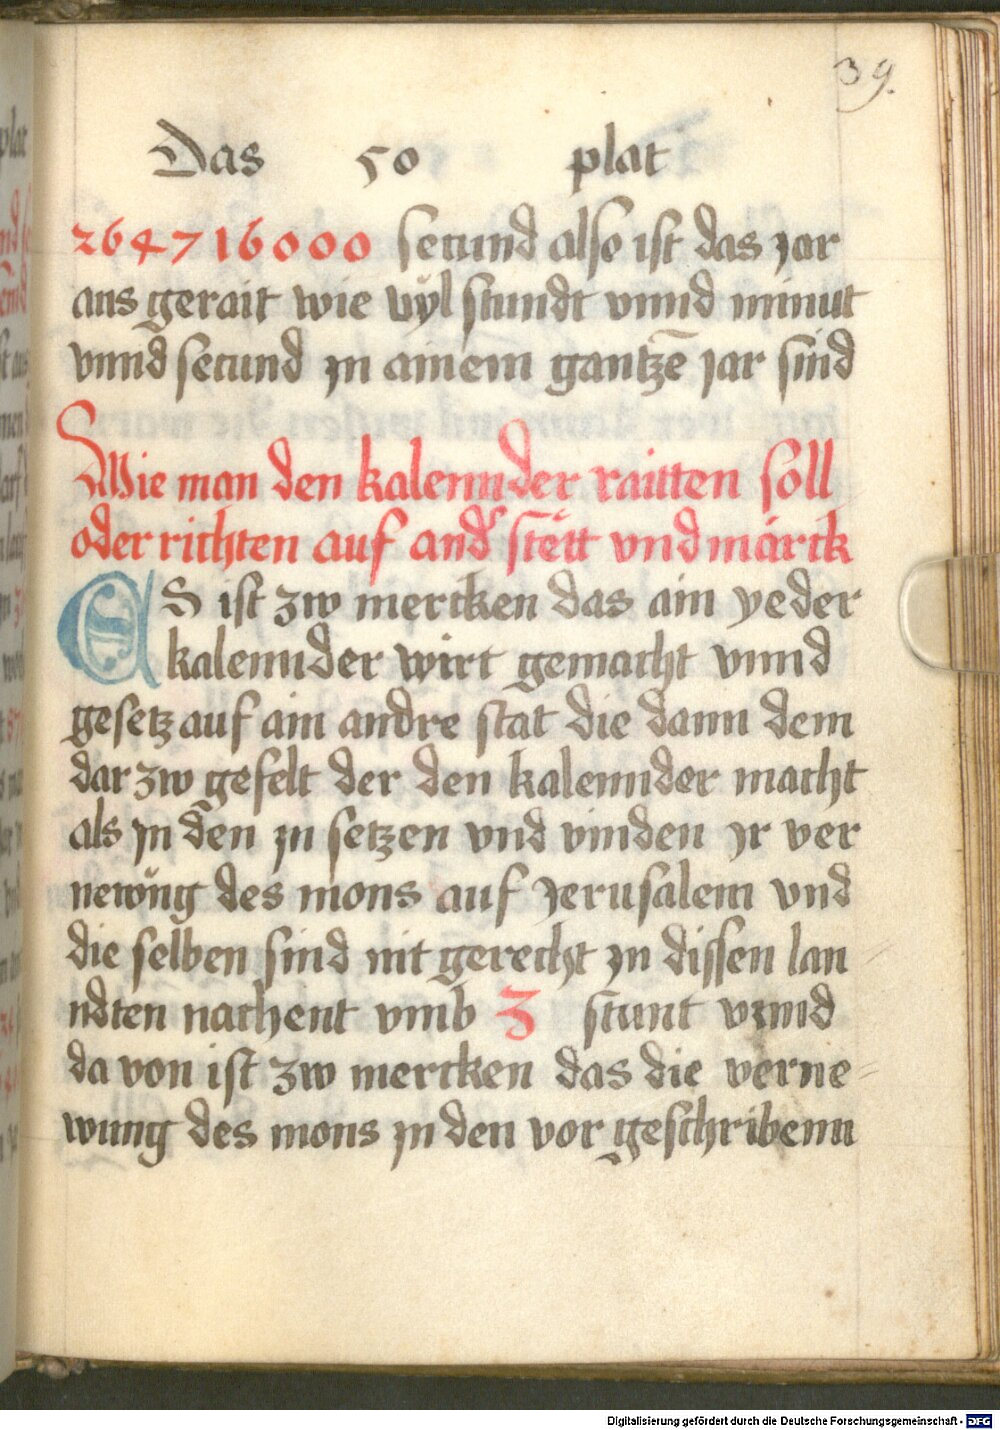 39.
Das 50 plat
264716000 secund also ist das jar
aus gerait wie vÿl stundt vnnd minut
vnnd secund jn ainem gantzē jar sind
Wie man den kalennder raitten soll
oder richten auf and͛ stett vnd märck
ES ist zw mercken das ain yeder
kalennder wirt gemacht vnnd
gesetz auf ain andre stat die dann dem
dar zw gefelt der den kalennder macht
als jn den jn setzen vnd vinden jr ver
newŭng des mons auf Jerusalem vnd
die selben sind nit gerecht jn dissen lan
ndten nachent vmb 3 stunt vnnd
da von ist zw mercken das die verne=
wung des mons jn den vor geschribenn
Digitalisierung gefördert durch die Deutsche Forschungsgemeinschaft - DFG